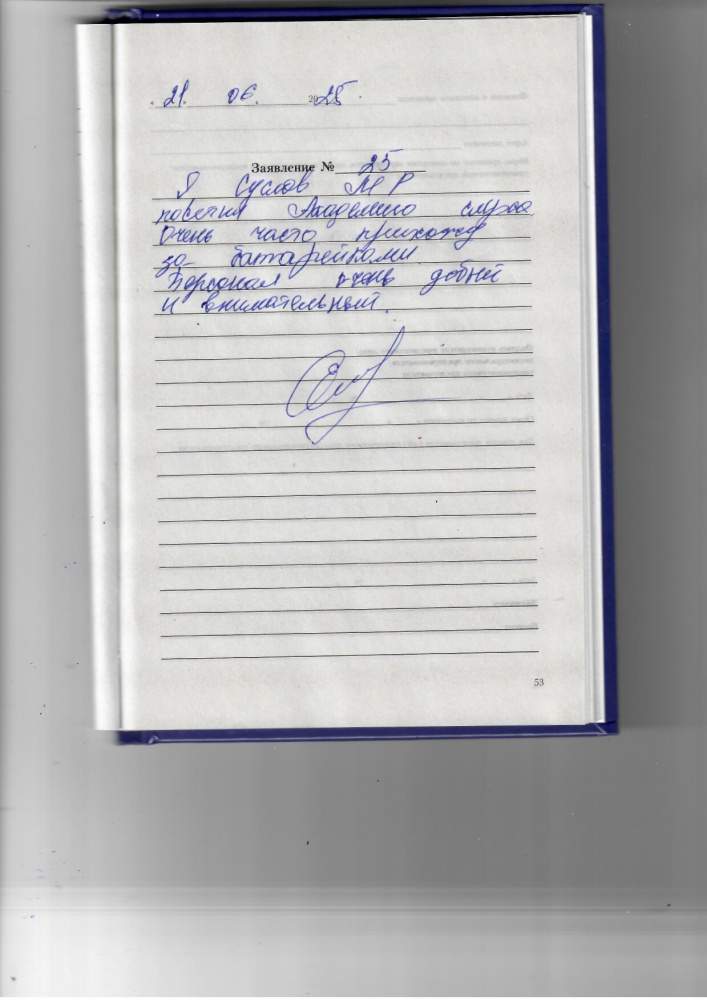 21. 06. 2025
Заявление № 25
Я Суслов М Р
посетил Академию слуха
очень часто прихожу
за батарейками
Персонал очень добрый
и внимательный.
53